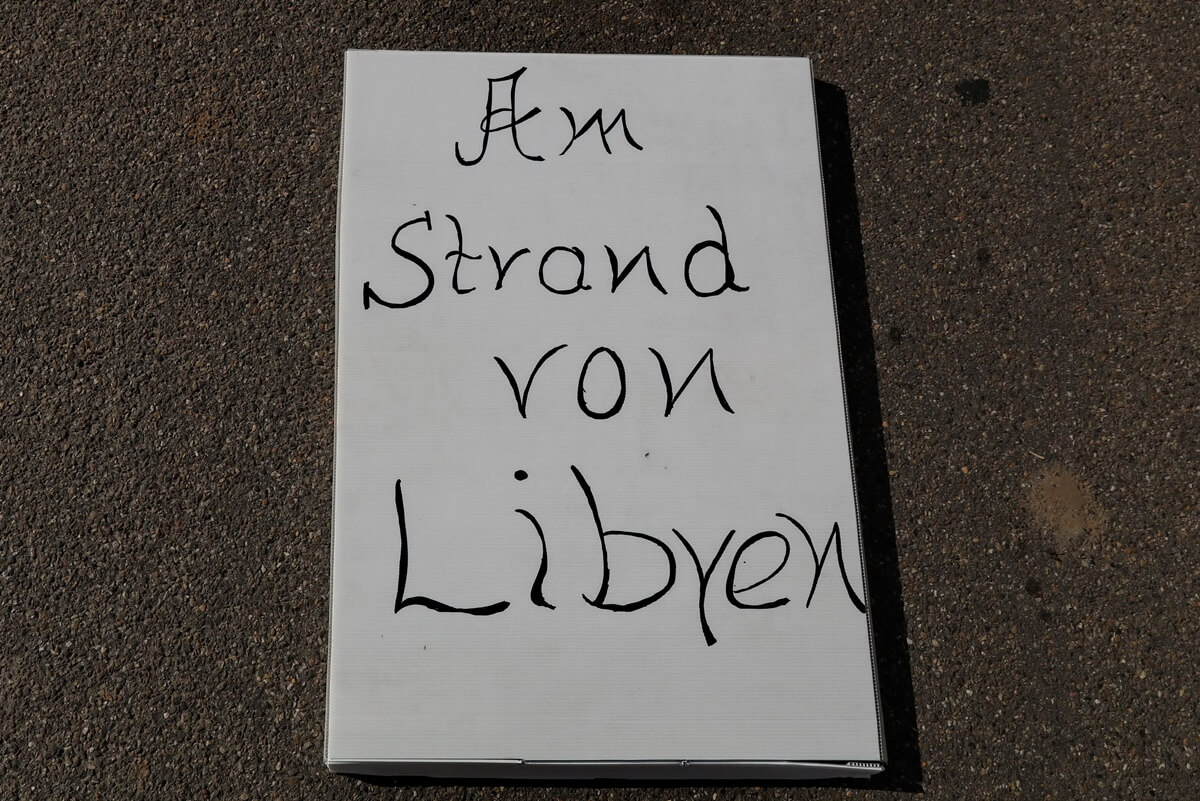 Am
Strand
von
Libyen